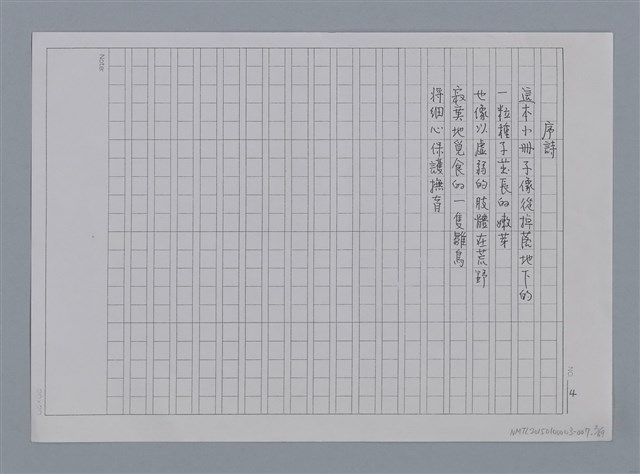 序詩
這本小冊子像從掉落地下的
一粒種子茁長的嫩芽
也像以虛弱的肢體在荒野
寂寞地覓食的一隻雛鳥
得細心保護撫育
Note:
NO
4